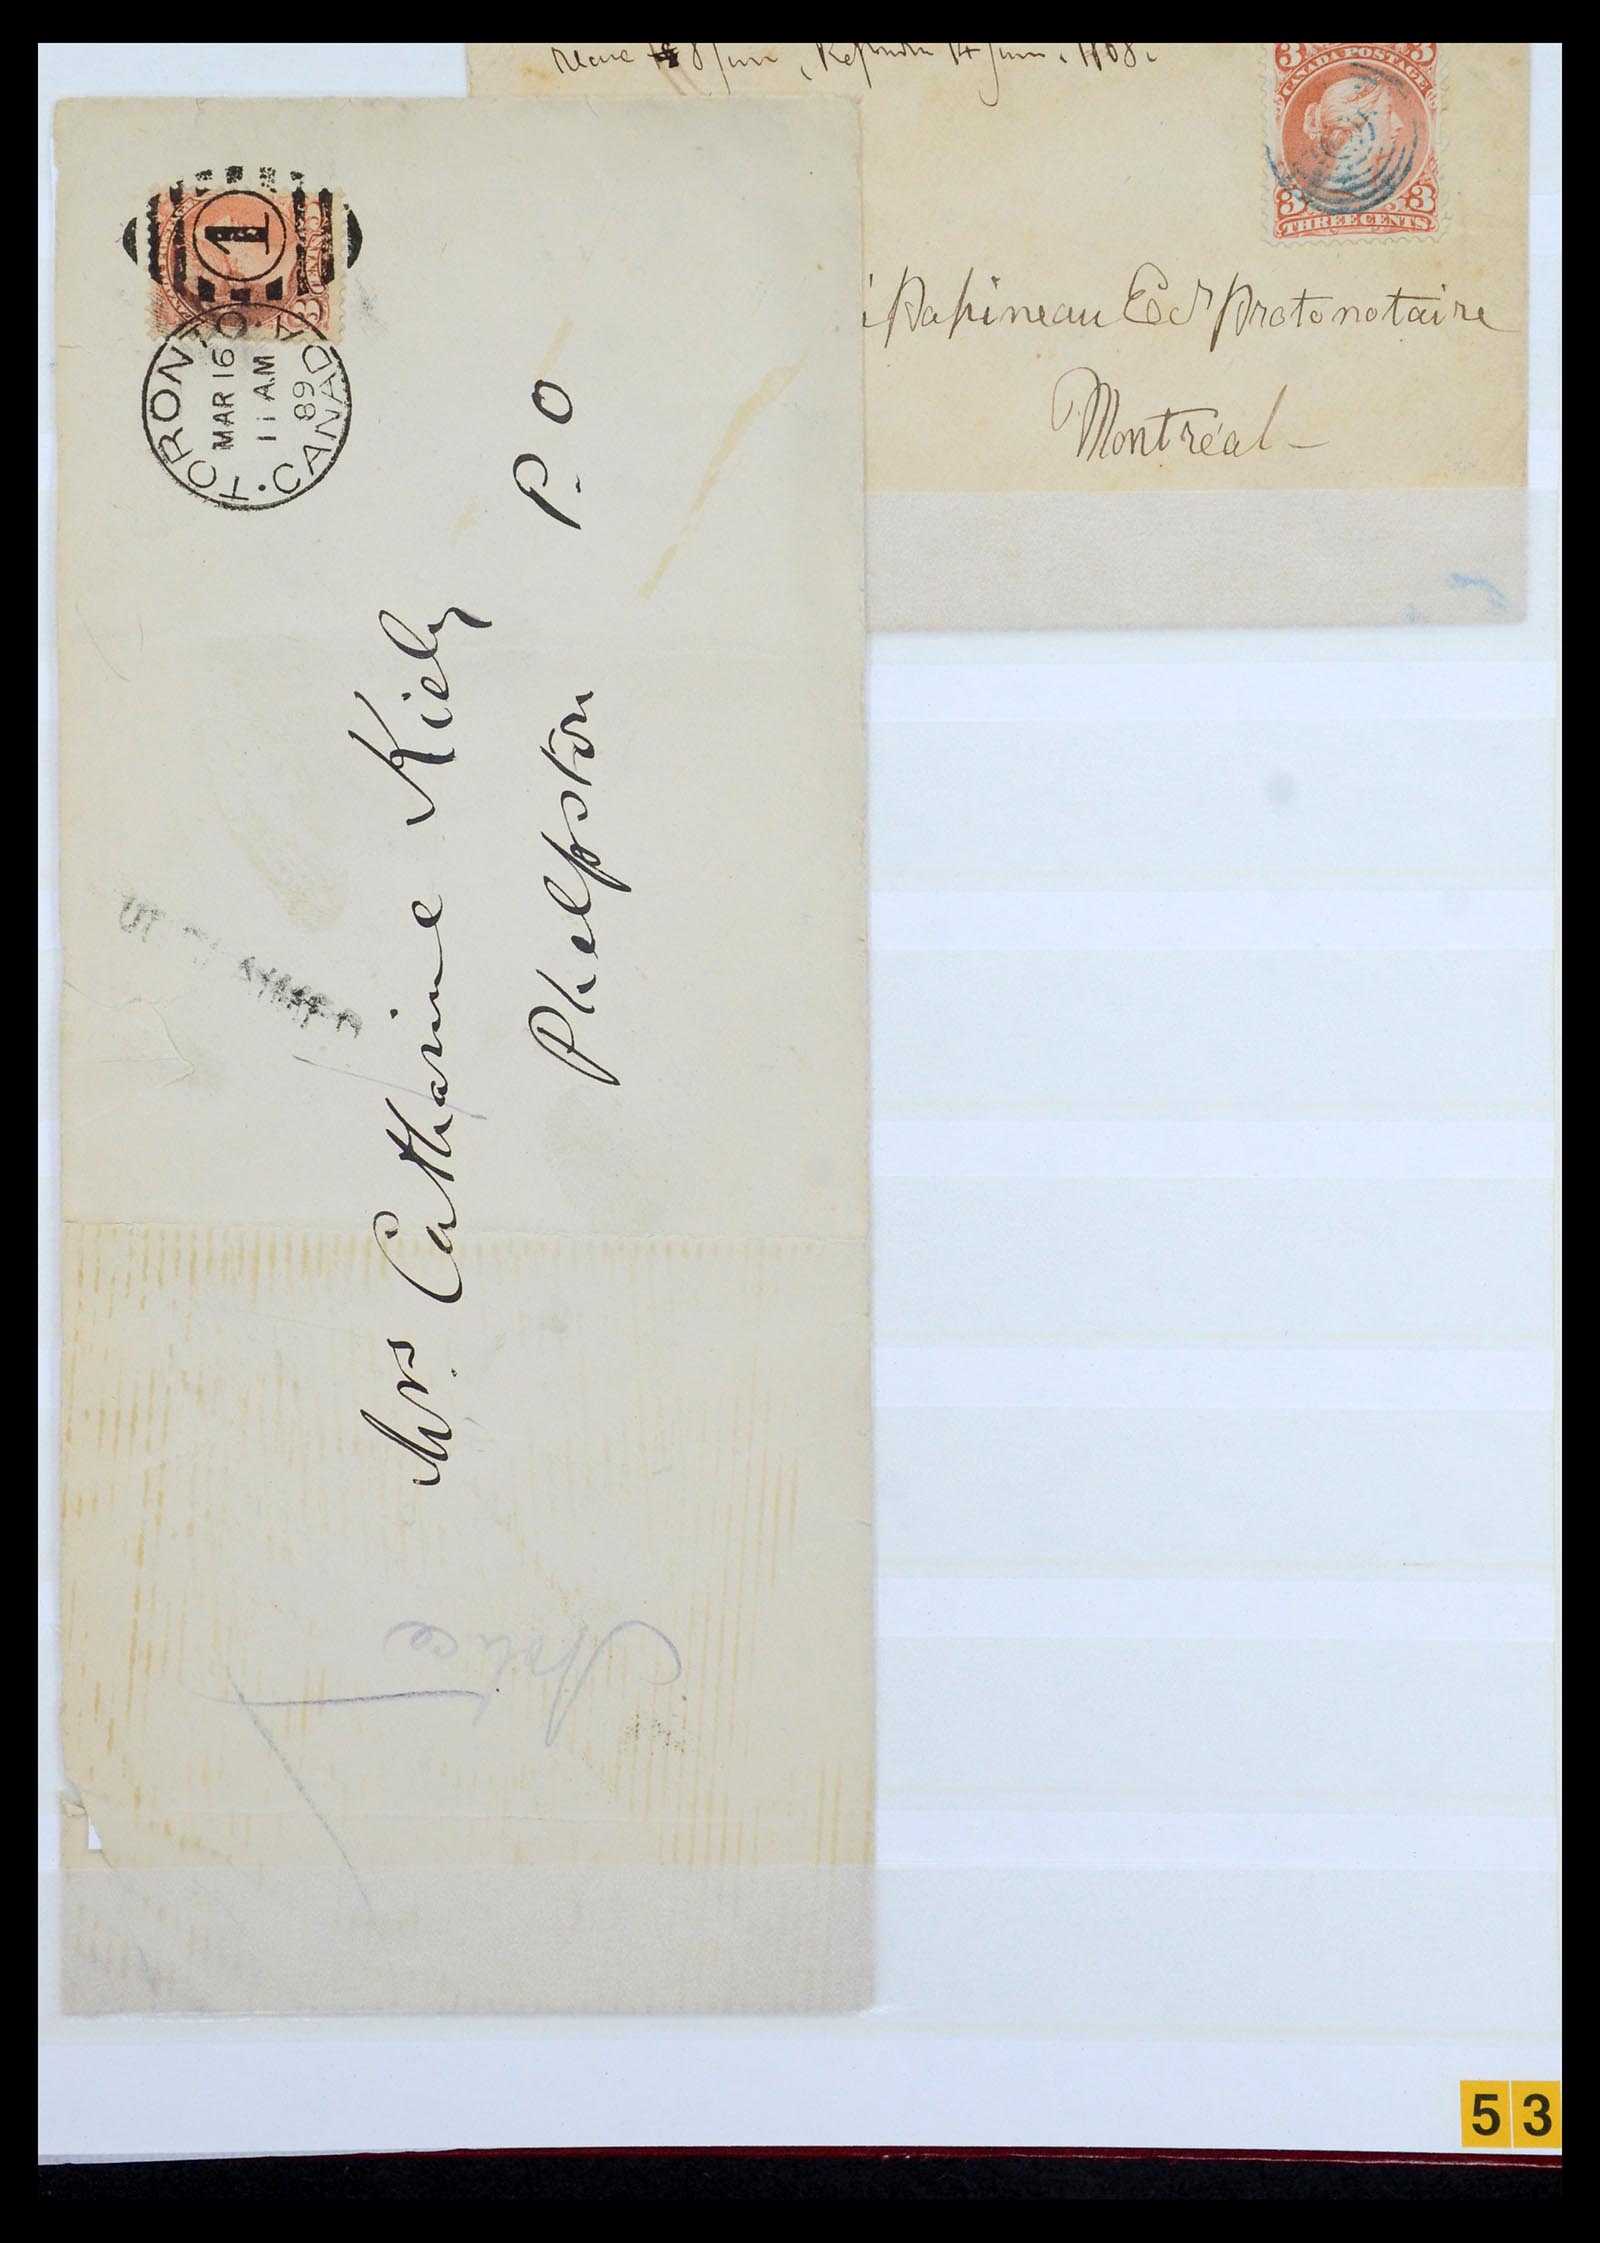 8 Juin, Répondu 14 Juin. 1868.
3 3
CANADA POSTAGE
3 3
THREE CENTS
Papineau Ecr Protonotaire
Montréal
1
3
CENTS
3
TORONTO. CANADA
MAR 16
11 AM
89
Mrs. Catharine Kiely
Phelpston P.O
Notice
53